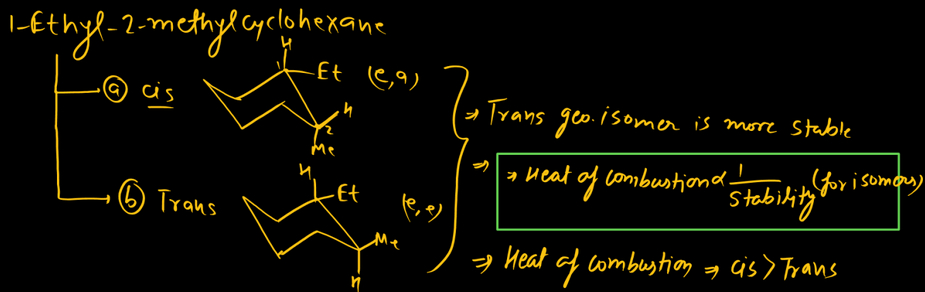 1-Ethyl-2-methylcyclohexane
ⓐ cis
H
1
Et (e,a)
H
2
Me
ⓑ Trans
H
Et (e,e)
Me
H
⇒ Trans geo. isomer is more stable
⇒
→ Heat of combustion ∝ 1/Stability (for isomers)
⇒ Heat of combustion ⇒ cis > Trans